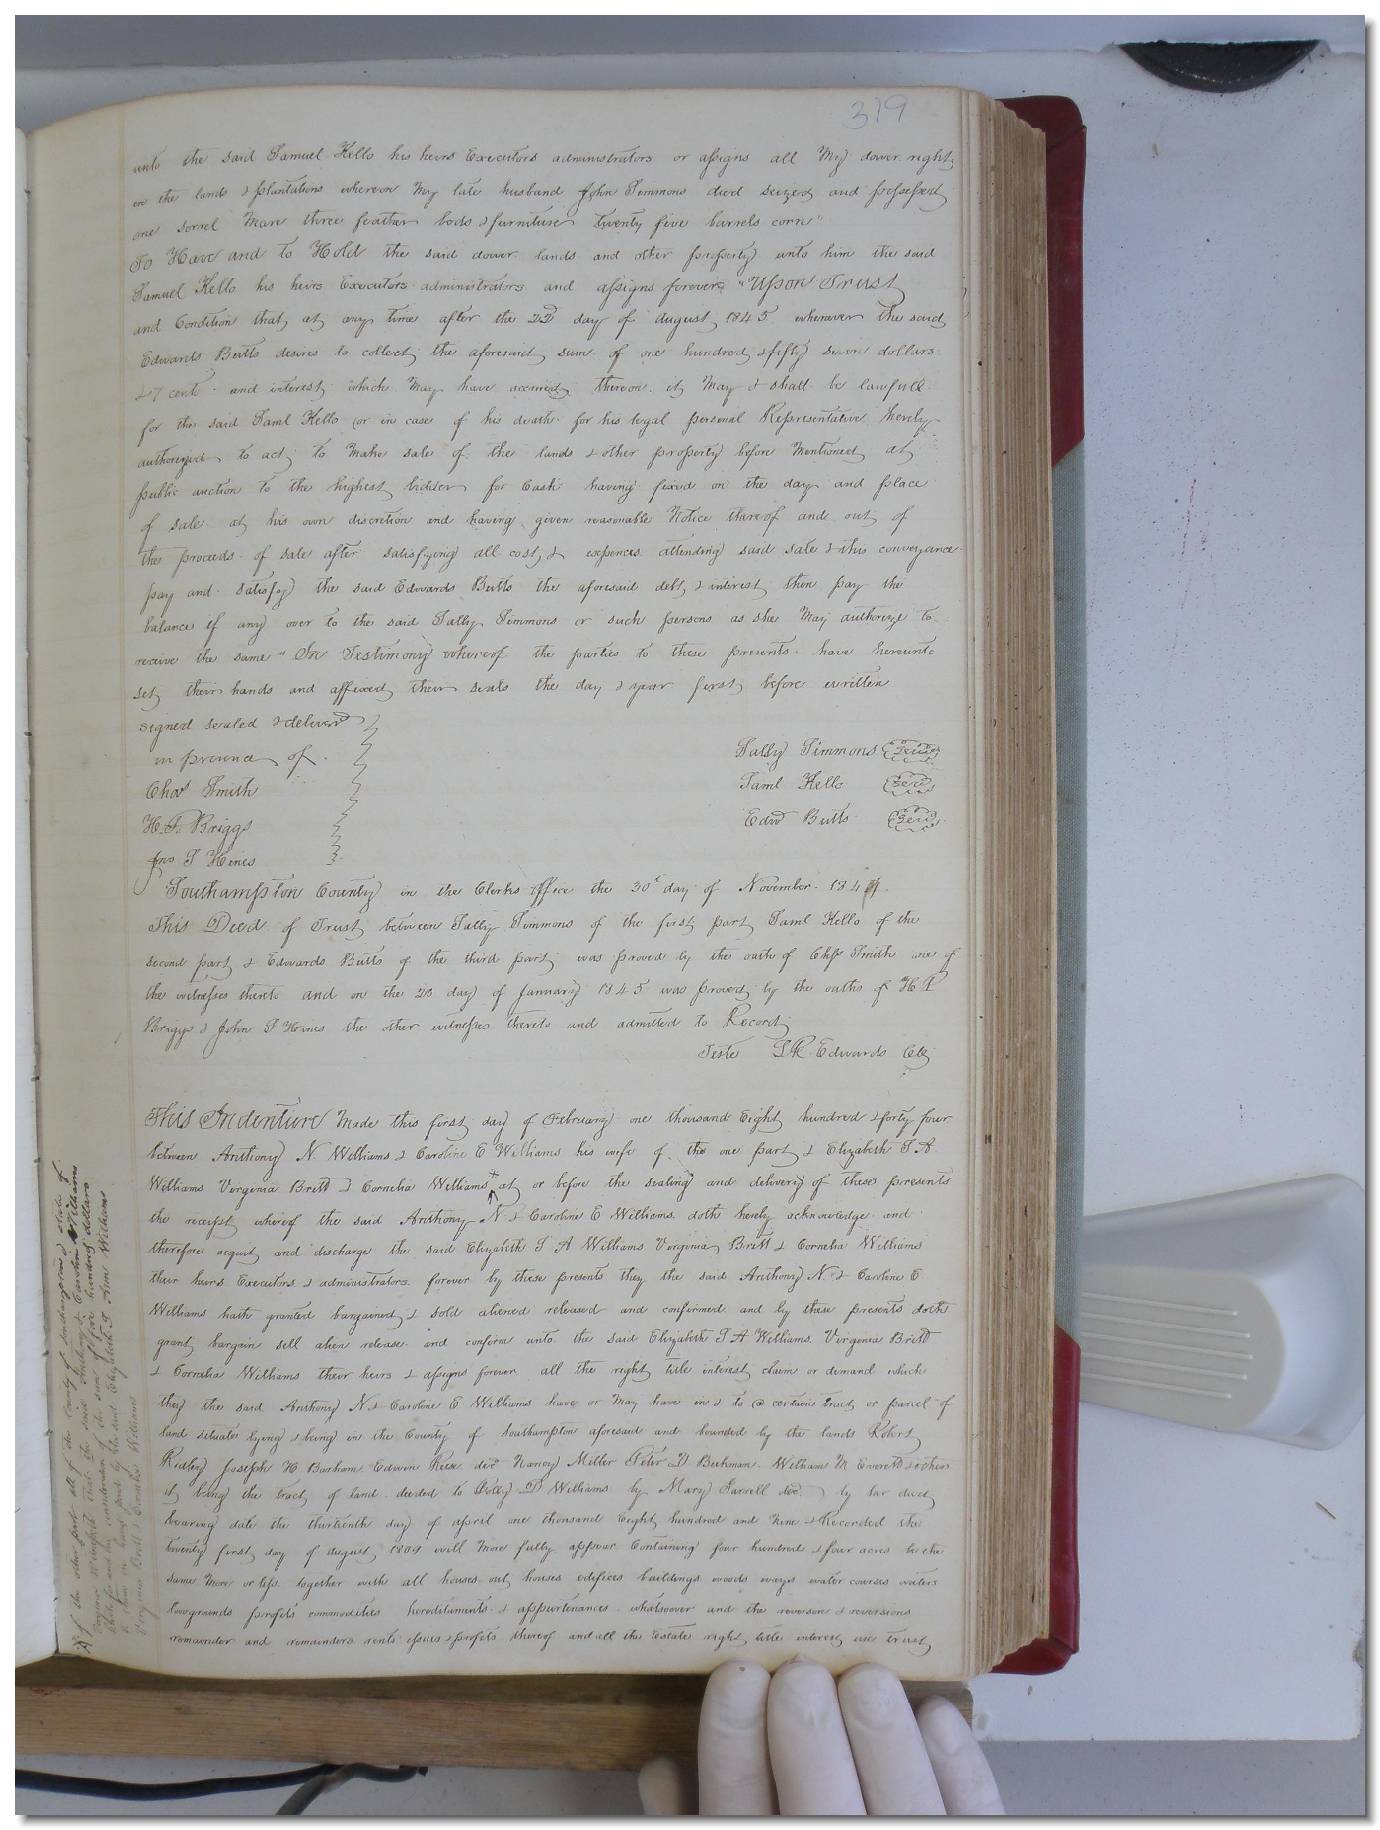 319
unto the said Samuel Kello his heirs Executors administrators or assigns all My dower right
in the lands & plantations whereon My late husband John Simmons died seized and possessed
one sorrel Mare three feather beds & furniture twenty five barrels corn"
To Have and to Hold the said dower lands and other property unto him the said
Samuel Kello his heirs Executors administrators and assigns forever "Upon Trust
and Condition that at any time after the 22 day of August 1845 whenever the said
Edwards Butts desires to collect the aforesaid sum of one hundred & fifty seven dollars
& 7 cents and interest which May have accrued thereon it May & shall be lawfull
for the said Saml Kello (or in case of his death for his legal personal Representative hereby
authorized to act to Make sale of the lands & other property before Mentioned at
public auction to the highest bidder for Cash having fixed on the day and place
of sale at his own discretion and having given reasonable Notice thareof and out of
the proceeds of sale after satisfying all cost & expences attending said sale & this conveyance
pay and satisfy the said Edwards Butts the aforesaid debt & interest then pay the
balance if any over to the said Sally Simmons or such persons as she May authorize to
receive the same "In Testimony whereof the parties to these presents have hereunto
set their hands and affixed their seals the day & year first before written
signed sealed & deliverd
in presence of
Chas Smith
H. P. Briggs
Jno S Hines
Sally Simmons Seal
Saml Kello Seal
Edwd Butts Seal
Southampton County in the Clerks office the 30t day of November 184
This Deed of Trust between Sally Simmons of the first part Saml Kello of the
second part & Edwards Butts of the third part was proved by the oath of Chs Smith one of
the witnesses thereto and on the 20 day of January 1845 was proved by the oaths of H P
Briggs & John S Hines the other witnesses thereto and admitted to Record
Teste L R Edwards Clk
This Indenture Made this first day of February one thousand Eight hundred & forty four
between Anthony N. Williams & Caroline E Williams his wife of the one part & Elizabeth T A
Williams Virginia Britt & Cornelia Williams * at or before the sealing and delivery of these presents
the receipt whereof the said Anthony N & Caroline E Williams doth hereby acknowledge and
therefore acquit and discharge the said Elizabeth T A Williams Virginia Britt & Cornelia Williams
their heirs Executors & administrators forever by these presents they the said Anthony N. & Caroline E
Williams hath granted bargained & sold aliened released and confirmed and by these presents doth
grant bargain sell alien release and confirm unto the said Elizabeth T A Williams Virginia Britt
& Cornelia Williams their heirs & assigns forever all the right title interest claim or demand which
they the said Anthony N & Caroline E Williams have or May have in & to a certain tract or parcel of
land situate lying & being in the County of Southampton aforesaid and bounded by the lands Robert
Ridley Joseph H Barham Edwin Reese decd Nancy Miller Peter D Beekman William M Everett & others
it being the tract of land deeded to Polly D Williams by Mary Jarrell decd by her deed
bearing date the thirteenth day of april one thousand Eight hundred and Nine & Recorded the
twenty first day of august 1809 will More fully appear Containing four hundred & four acres be the
same More or less together with all houses out houses edifices buildings woods ways water courses waters
lowgrounds profits commodities hereditaments & appurtenances whatsoever and the reversion & reversions
remainder and remainders rents issues & profits thereof and all the Estate right title interest use trust
* of the other part all of the County of Southampton & State of
Virginia Witnesseth that the said Anthony & Caroline Williams
his wife for and in consideration of the sum of five hundred dollars
to them in hand paid by the said Elizabeth T Ann Williams
Virginia Britt & Cornelia Williams